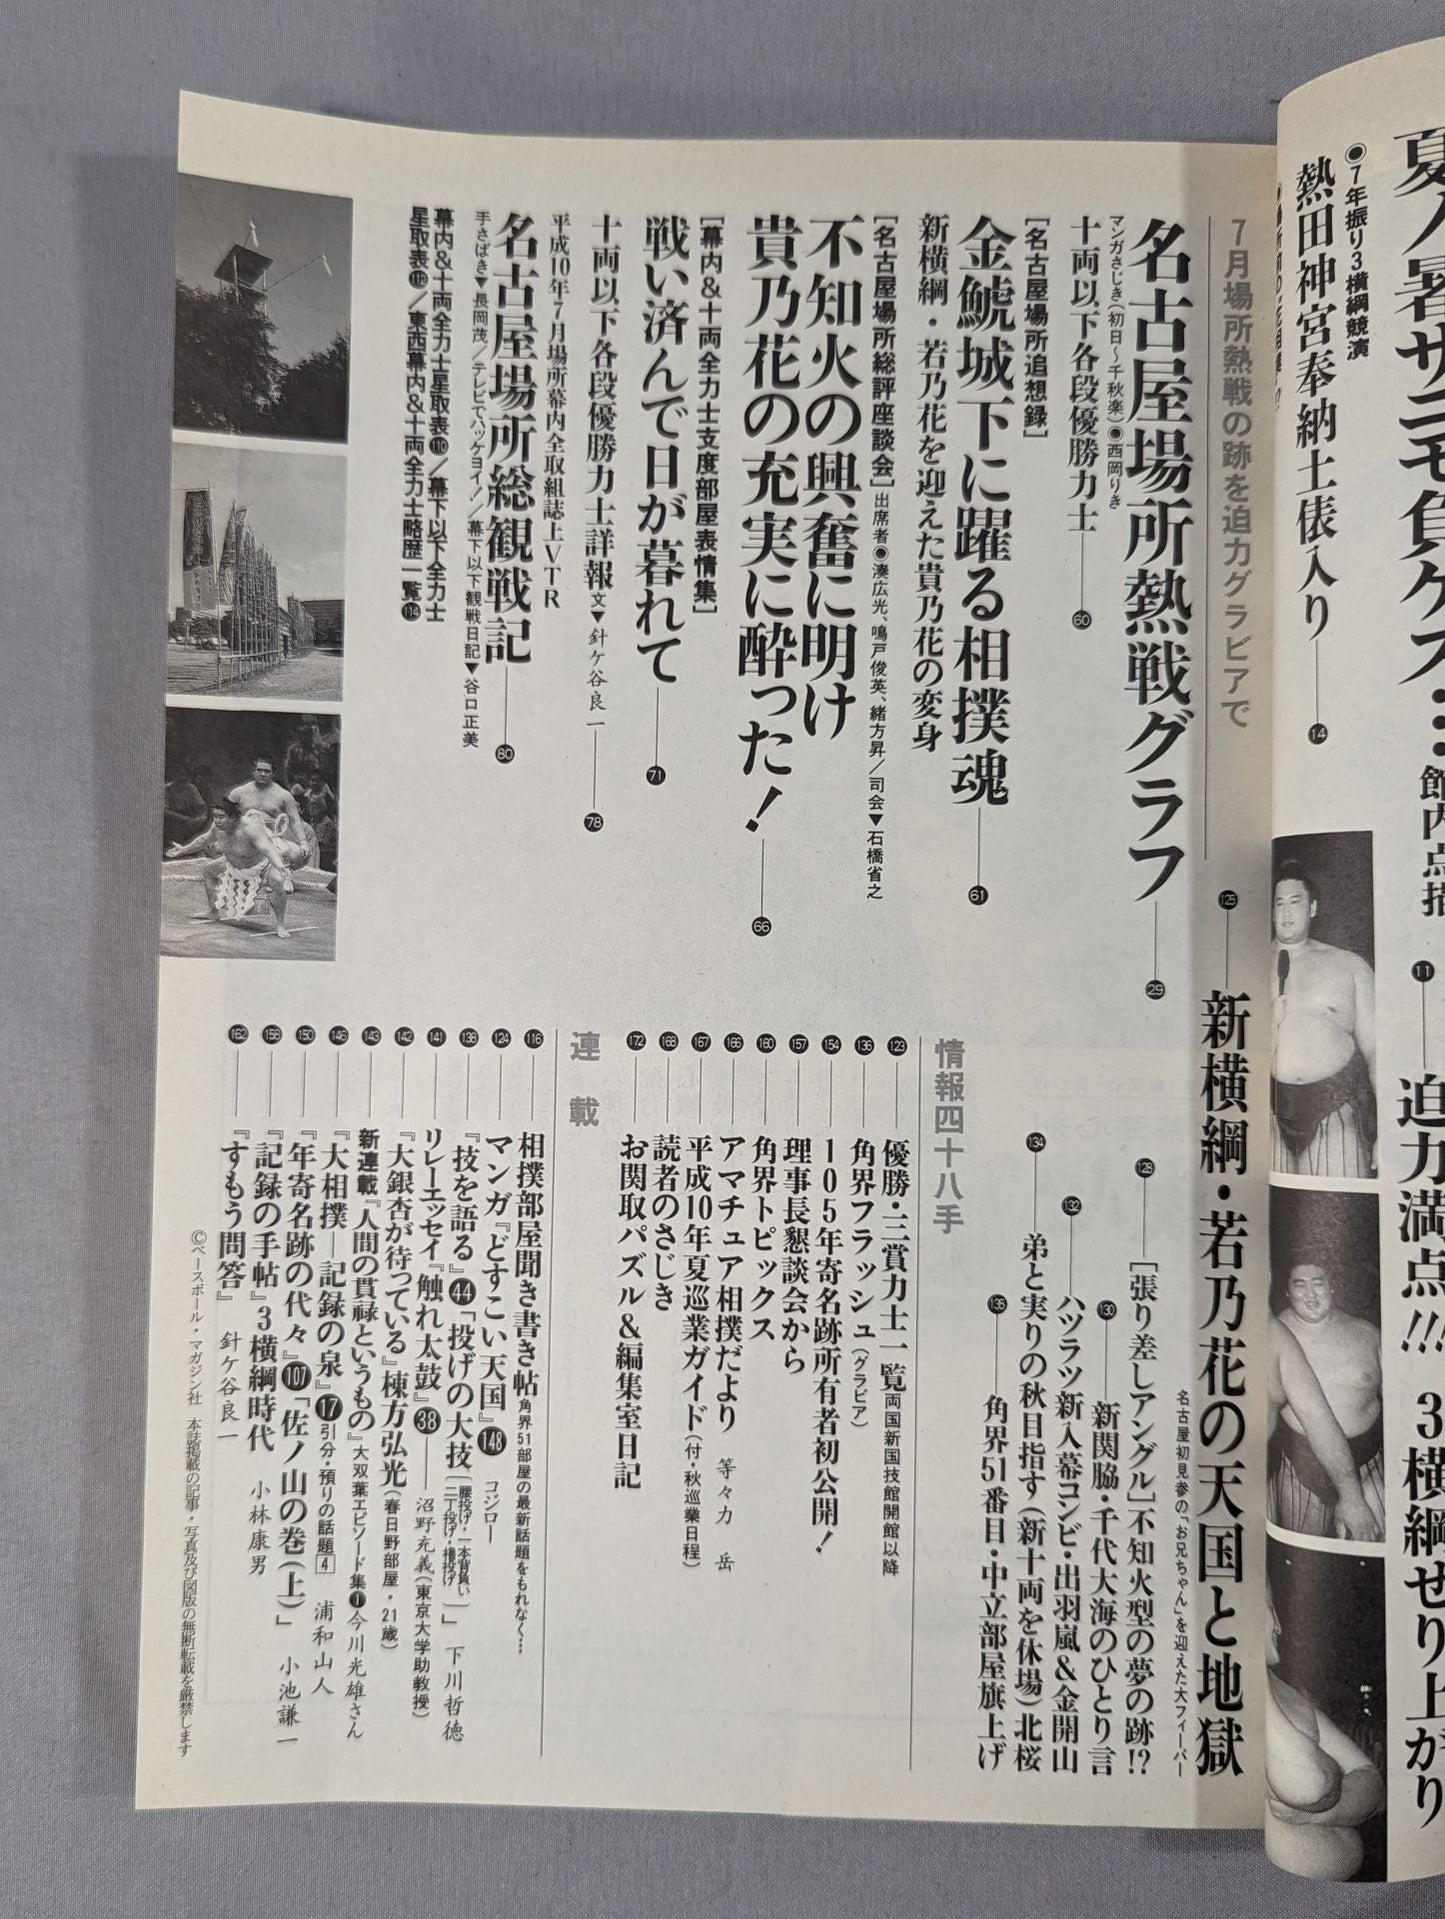 夏
サニモ負ケズ…
館内点描
11
迫力満点!!!
3横綱せり上がり
●7年振り3横綱競演
熱田神宮奉納土俵入り
14
7月場所熱戦の跡を迫力グラビアで
名古屋場所熱戦グラフ
29
マンガさじき(初日〜千秋楽)●西岡りき
十両以下各段優勝力士
60
[名古屋場所追想録]
金鯱城下に躍る相撲魂
61
新横綱・若乃花を迎えた貴乃花の変身
[名古屋場所総評座談会]
出席者●湊広光、鳴戸俊英、緒方昇/司会▼石橋省之
不知火の興奮に明け
貴乃花の充実に酔った!
66
[幕内&十両全力士支度部屋表情集]
戦い済んで日が暮れて
71
十両以下各段優勝力士詳報
文▼針ケ谷良一
78
平成10年7月場所幕内全取組誌上VTR
名古屋場所総観戦記
80
手さばき▼長岡茂/テレビでハッケヨイ!/幕下以下観戦日記▼谷口正美
幕内&十両全力士星取表110/幕下以下全力士
星取表112/東西幕内&十両全力士略歴一覧114
125
新横綱・若乃花の天国と地獄
名古屋初見参の「お兄ちゃん」を迎えた大フィーバー
128
[張り差しアングル]不知火型の夢の跡!?
130
新関脇・千代大海のひとり言
132
ハツラツ新入幕コンビ・出羽嵐&金開山
134
弟と実りの秋目指す(新十両を休場)北桜
135
角界51番目・中立部屋旗上げ
情報四十八手
123
優勝・三賞力士一覧
両国新国技館開館以降
136
角界フラッシュ(グラビア)
154
105年寄名跡所有者初公開!
157
理事長懇談会から
160
角界トピックス
166
アマチュア相撲だより
等々力 岳
167
平成10年夏巡業ガイド(付・秋巡業日程)
168
読者のさじき
172
お関取パズル&編集室日記
連載
116
相撲部屋聞き書き帖
角界51部屋の最新話題をもれなく…
124
マンガ『どすこい天国』148
コジロー
138
『技を語る』44「投げの大技(腰投げ・一本背負い 二丁投げ・櫓投げ)」
下川哲徳
141
リレーエッセイ『触れ太鼓』38
沼野充義(東京大学助教授)
142
『大銀杏が待っている』棟方弘光
(春日野部屋・21歳)
143
新連載『人間の貫禄というもの』
大双葉エピソード集1今川光雄さん
146
『大相撲—記録の泉』17引分・預りの話題4
浦和山人
150
『年寄名跡の代々』107「佐ノ山の巻(上)」
小池謙一
158
『記録の手帖』3横綱時代
小林康男
162
『すもう問答』
針ケ谷良一
©ベースボール・マガジン社 本誌掲載の記事・写真及び図版の無断転載を厳禁します